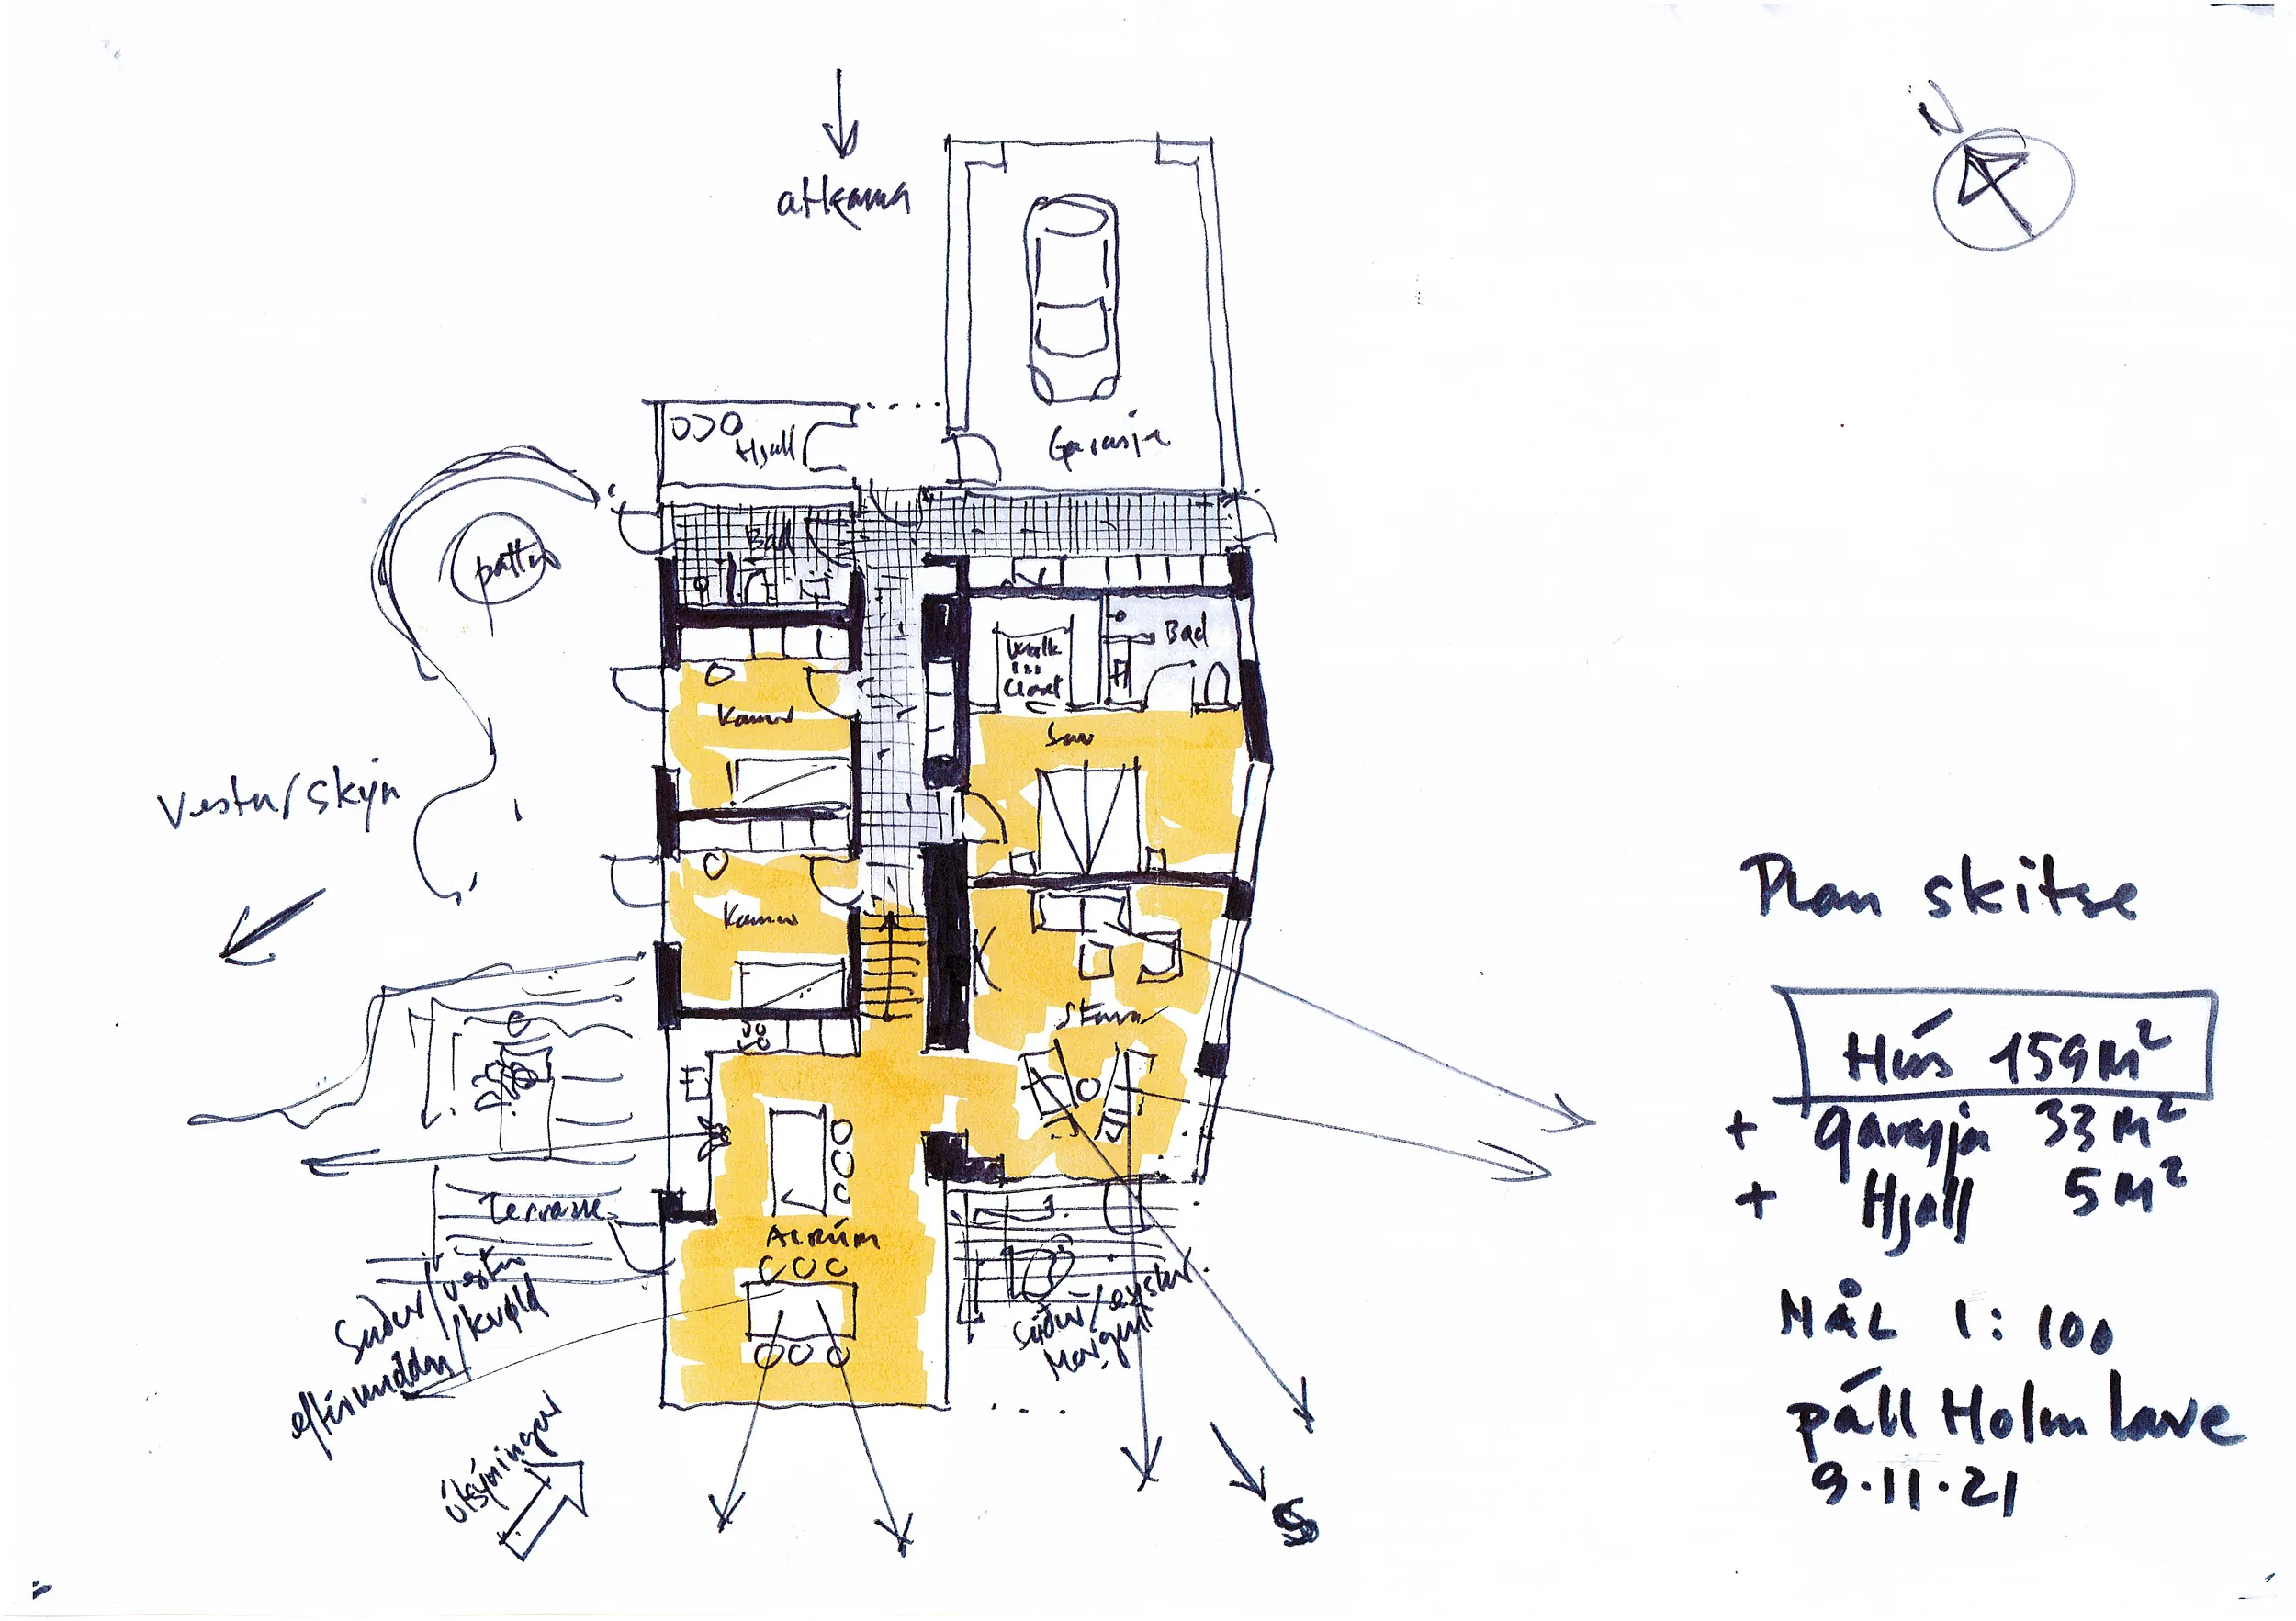 N
atkoma
Garasja
Hjall
Bad
pottur
Walk
in
Closet
Bad
Kamar
Sov
Vestur/skýn
Kamar
Stova
Terrasse
ALRÚM
Suður/vestur
eftirmiddag/kvøld
Suður/eystur
Morgun
útsýningar
S
Plan skitse
Hús 159 m²
+ garasja 33 m²
+ Hjall 5 m²
MÅL 1:100
páll Holm Lave
9.11.21